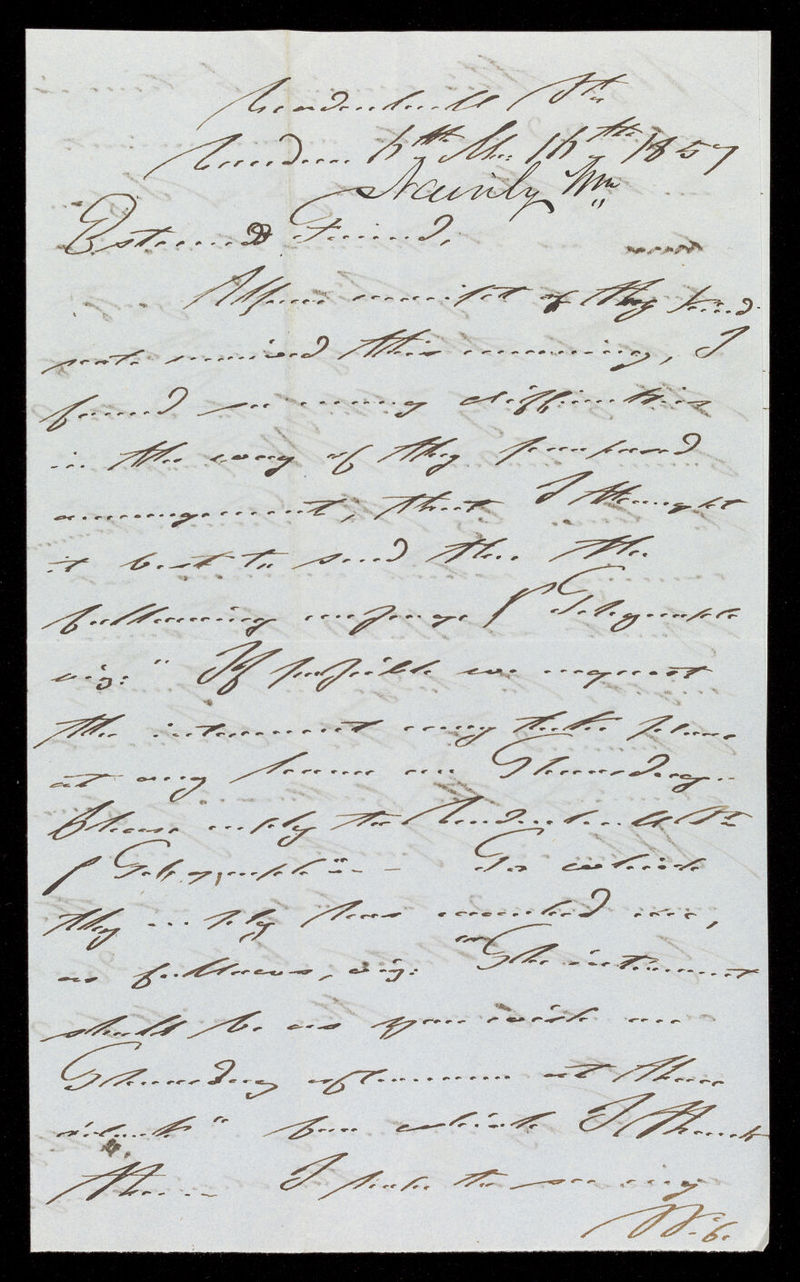 Leadenhall St.
London 6th Mo: 16th 1857
Esteemed Friend,
Upon receipt of thy kind
note received this morning, I
found so many difficulties
in the way of thy proposed
arrangement, that I thought
it best to send thee the
following message P Telegraph
viz: " If possible we request
the interment may take place
at any hour on Thursday.
Please reply to Leadenhall St.
P Telegraph" - To which
thy reply has reached me,
as follows, viz: "The interment
shall be as you wish on
Thursday afternoon at three
o'clock" for which I thank
thee.. I hope to see my